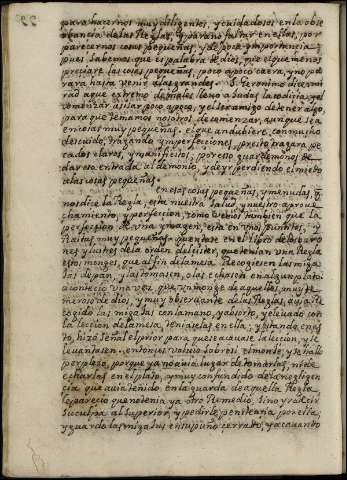 para hacernos muy diligentes, y cuidadosos en la obse
rvancia de las Reglas, y para no faltar en ellas, por
parecernos cosas pequeñas, y de poca importancia
pues sabemos que es palabra de dios, que el que menos
preciare las cosas pequeñas, poco a poco caera, y no pa
rara hasta venir a las grandes. S. Geronimo dice mi
rad a que extremo de males llevo a Judas la codicia, y el
comenzar a sisar poco a poco, y el ser amigo de tener algo
para que temamos nosotros de comenzar, aunque sea
en cosas muy pequeñas. el que anduviere con mucho
descuido, tragando ymperfecciones, presto tragara pe
cados claros, y manifiestos; por eso guardemonos de
dar esa entrada al demonio, y de yr perdiendo el miedo
a las cosas pequeñas.
en esas cosas pequeñas, y menudas, q
nos dice la Regla, esta nuestra salud, y nuestro aprove
chamiento, y perfeccion, como vemos tambien que la
perfeccion de una ymagen, esta en unos puntitos, y
Raitas muy pequeñas. quentase en el libro de los baro
nes ylustres de la orden del cister, que tenian una Regla
estos monges, que al fin de la mesa Recogiesen las miga
las de pan, y las comiesen, o las echasen en algun plato.
acontecio una vez que un monge de aquellos, muy te
meroso de dios, y muy observante de las Reglas, avia re
cogido las migalas con la mano, y absorto, y elevado con
la leccion de la mesa, teniaselas en ella; y estando en es
to, hizo señal el prior para que se acavase la leccion, y se
levantasen. entonces volvio sobre si el monge, y se hallo
perplejo, porque ya no avia lugar de tomarlas, ni de
echarlas en el plato, y muy confundido de la negligen
cia que avia tenido en la guarda de aquella Regla,
le parecio que no tenia ya otro Remedio, sino yr a decir
su culpa al superior, y pedirle penitencia por ella,
y guardo las migalas en su puño cerrado, y acavando